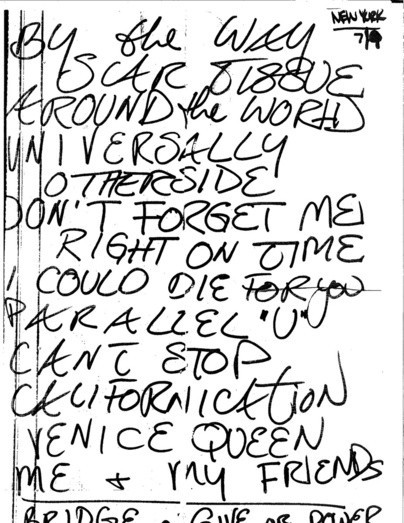 NEW YORK
7/9
BY the WAY
SCAR TISSUE
AROUND the WORLD
UNIVERSALLY
OTHERSIDE
DON'T FORGET ME
RIGHT ON TIME
I COULD DIE FOR YOU
PARALLEL "U"
CAN'T STOP
CALIFORNICATION
VENICE QUEEN
ME + MY FRIENDS
BRIDGE GIVE POWER